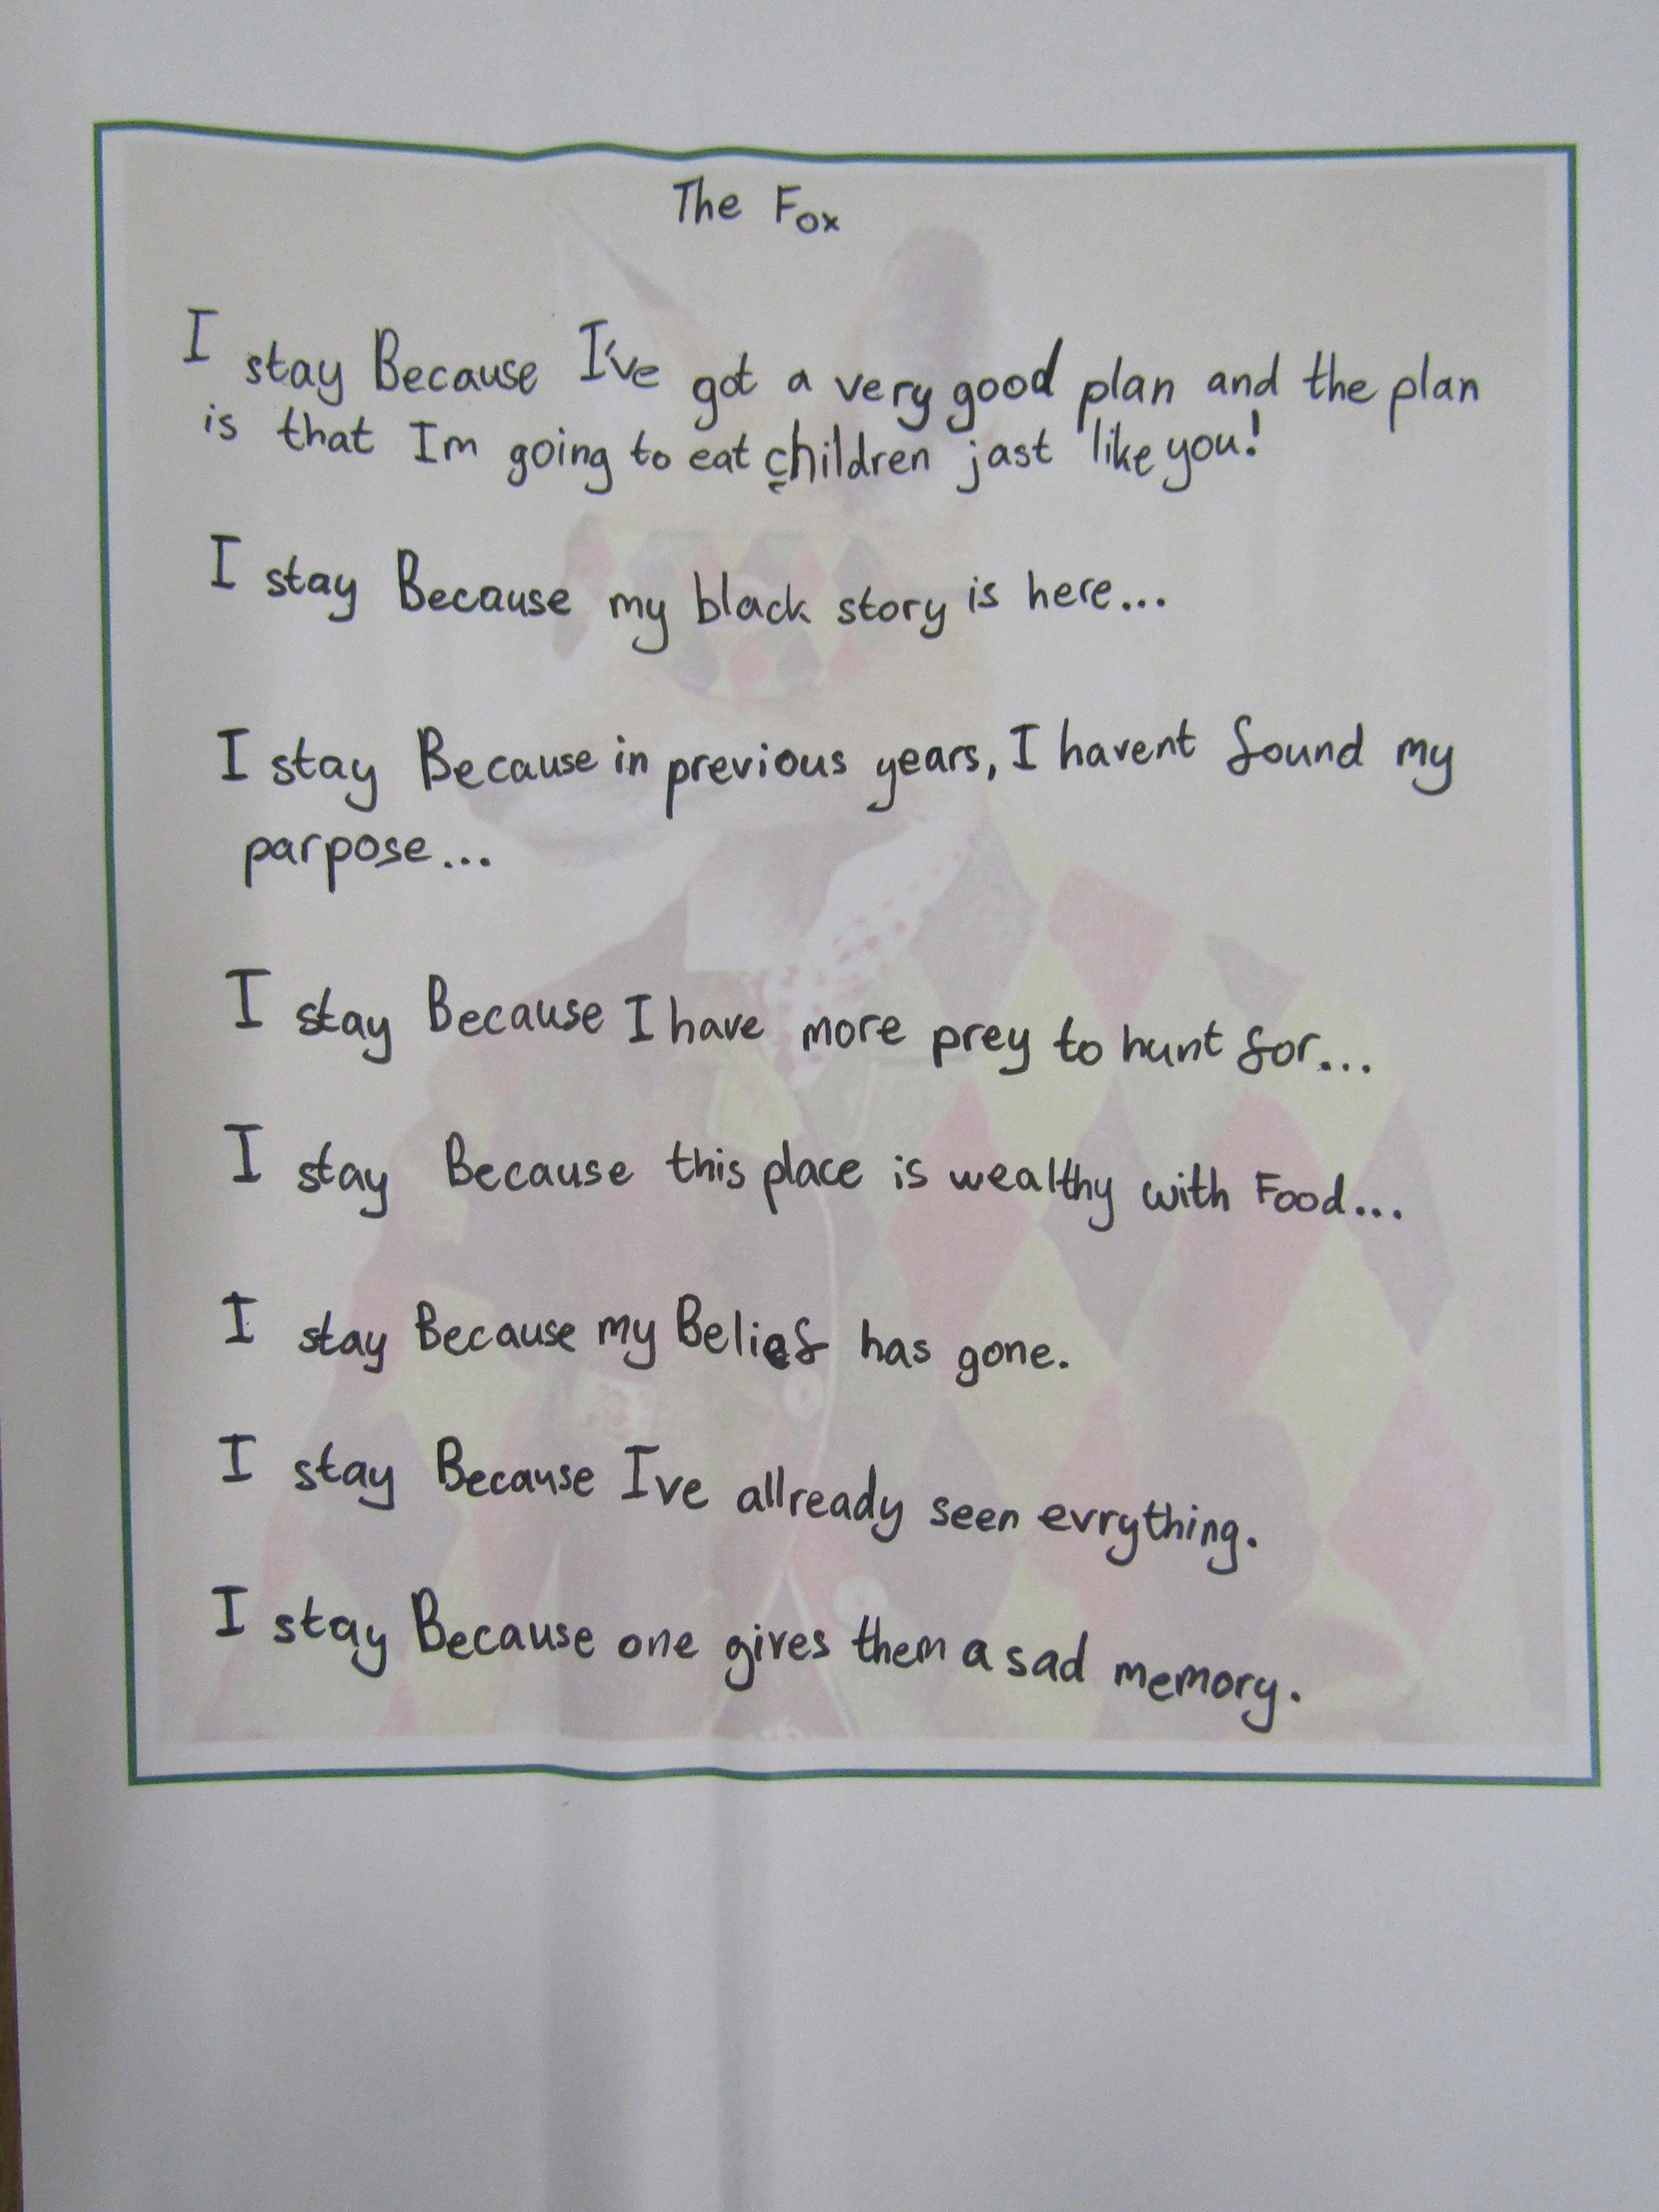 The Fox
I stay Because I've got a very good plan and the plan
is that Im going to eat children jast like you!
I stay Because my black story is here...
I stay Because in previous years, I havent found my
parpose...
I stay Because I have more prey to hunt for...
I stay Because this place is wealthy with Food...
I stay Because my Belief has gone.
I stay Because Ive allready seen evrything.
I stay Because one gives them a sad memory.